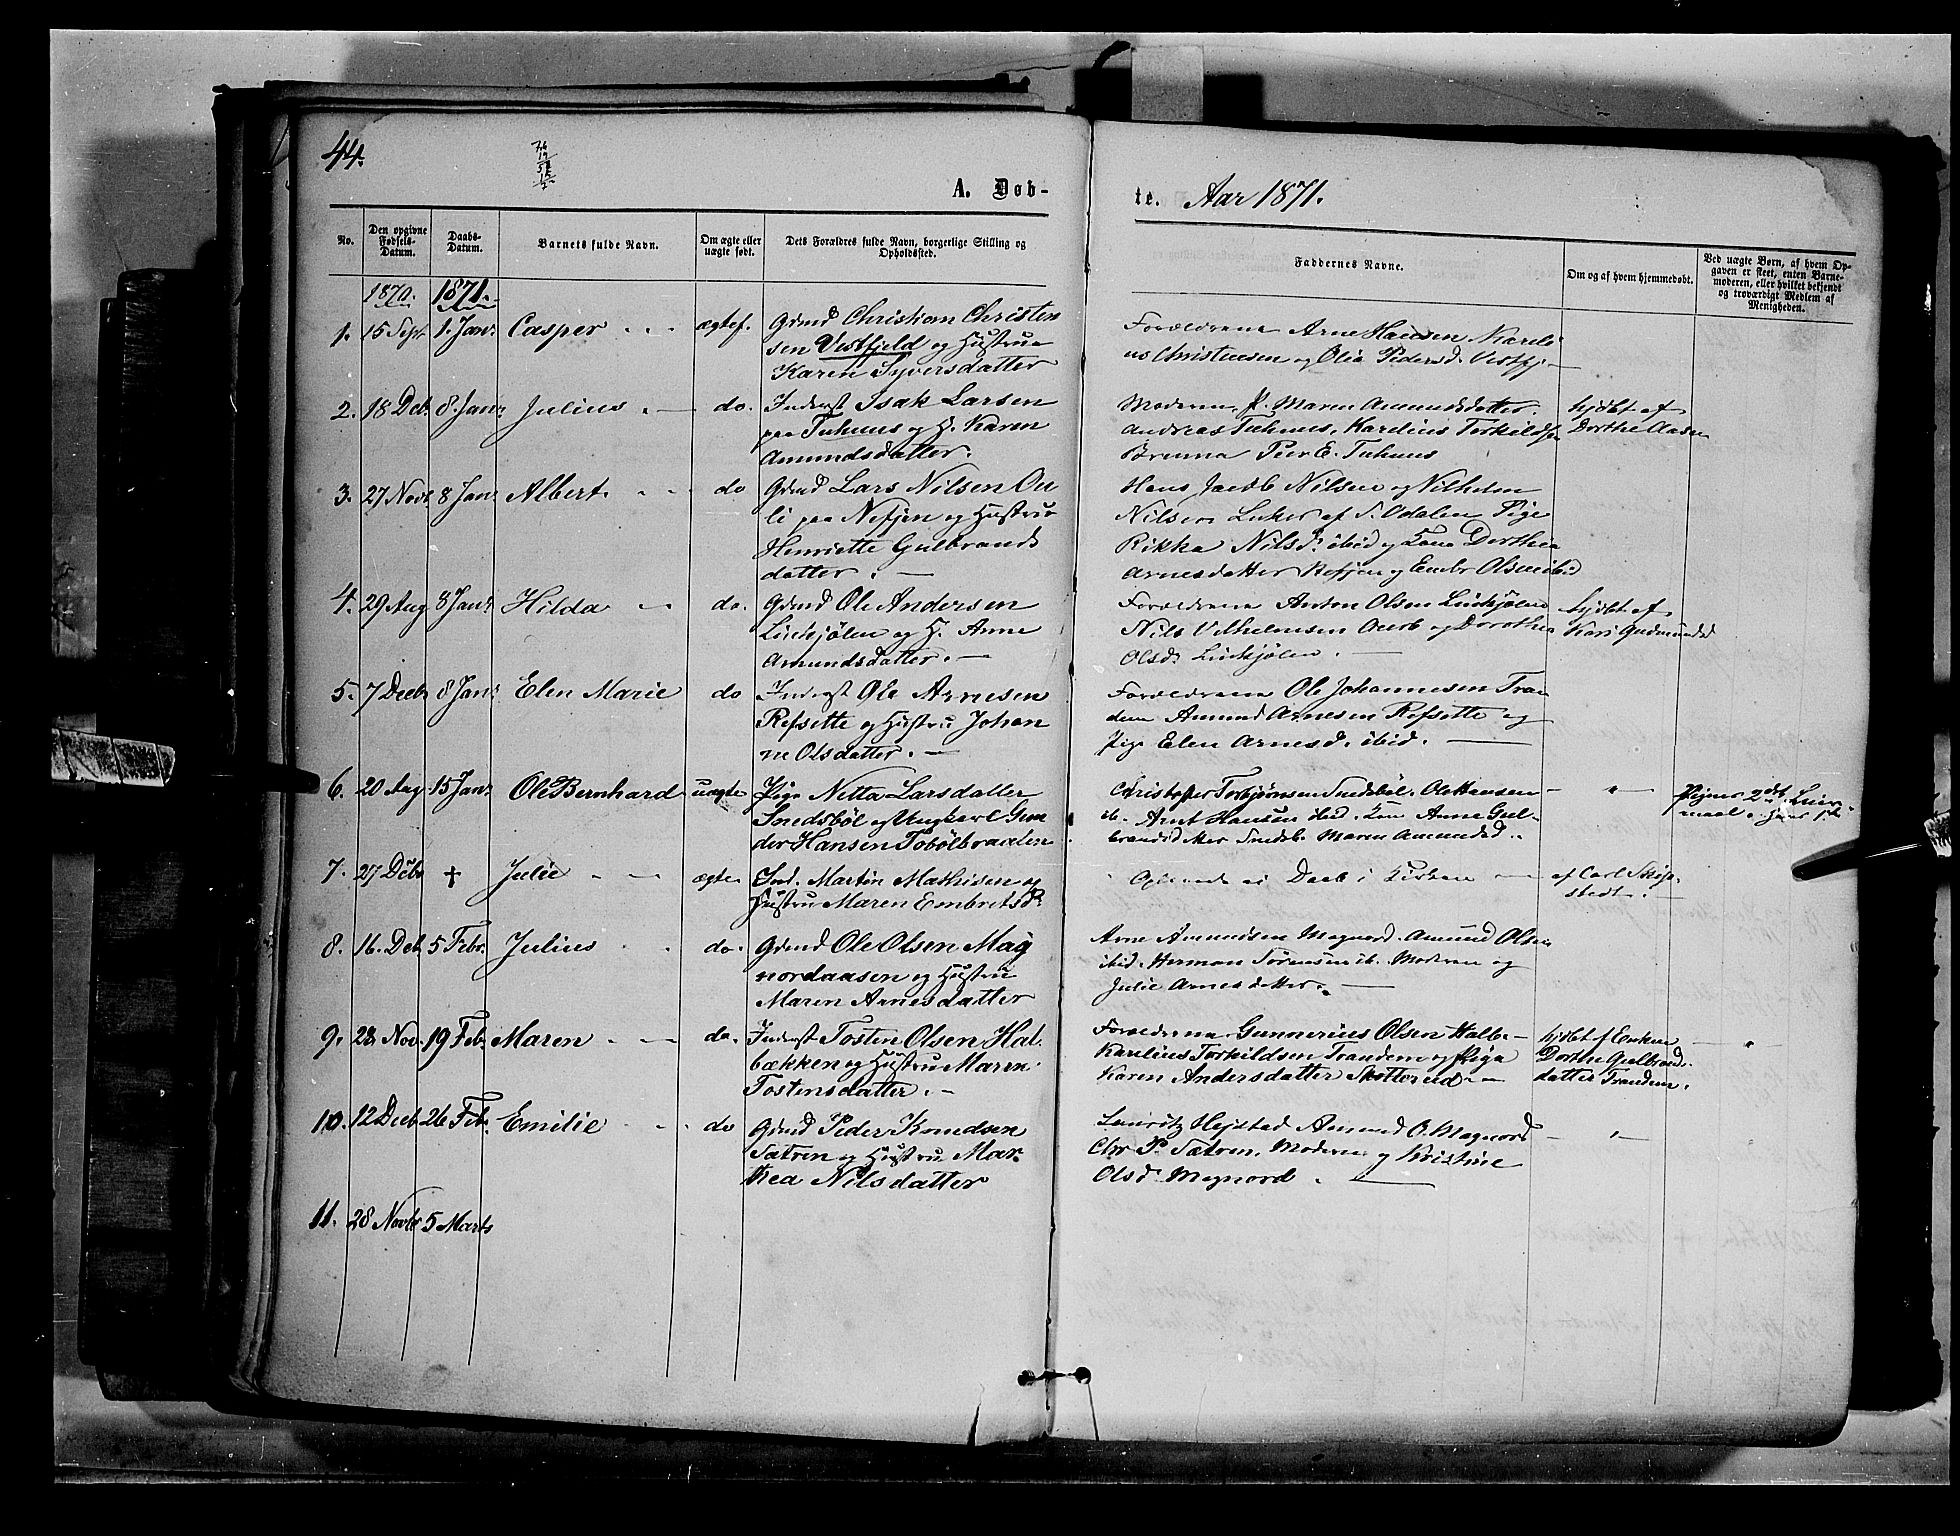 44.
A. Døb-
te. Aar 1871.
No.
Den opgivne Fødsels-Datum.
Daabs-Datum.
Barnets fulde Navn.
Om ægte eller uægte født.
Dets Forældres fulde Navn, borgerlige Stilling og Opholdssted.
Faddernes Navne.
Om og af hvem hjemmedøbt.
Ved uægte Børn, af hvem Op-
gaven er skeet, enten Barne-
moderen, eller hvilket bekjendt
og troværdigt Medlem af
Menigheden.
1870. 1871.
1. 15 Sept 1. Jan: Casper ægtef. Gdmd Christian Christen
sen Vestfjeld og Hustrue
Karen Syversdatter
Forældrene Arne Hansen Kareli
us Christensen og Olia Pedersd. Vestfj
2. 18 Deb. 8. Jan: Julius do. Inderst Isak Larsen
paa Tuhuus og H. Karen
Amundsdatter.
Moderen, P. Maren Amundsdatter.
Andreas Tuhuus, Karelius Torkilds
Brenna Peer E. Tuhuus
hjdbt af
Dorthe Aasen
3. 27 Novb 8 Jan: Albert do Gdmd Lars Nilsen Ou
li paa Nefjen og Hustrue
Henriette Gulbrands
datter.
Hans Jacob Nilsen og Vilhelm
Nilsen Luker af S. Odalen Pige
Rikka Nilsd: ibid og Kone Dorthea
Arnesdatter Nefjen og Embr Olsen ibid
4. 29 Aug 8 Jan: Hilda do. Gdmd Ole Andersen
Linkjølen og H. Anne
Amundsdatter.
Forældrene Anton Olsen Linkjølen
Nils Vilhelmsen Aaerb og Dorothea
Olsd: Linkjølen.
hjdbt af
Kari Gudmundsd
5. 7 Decb 8 Jan: Elen Marie do Inderst Ole Arnesen
Refsette og Hustru Johan
ne Olsdatter.
Forældrene Ole Johannesen Tran
dem Amund Arnesen Refsette og
Pige Elen Arnesd. ibid.
6. 20 Aug 15 Jan: Ole Bernhard uægte Pige Netta Larsdatter
Snedsbøl og Ungkarl Gun
der Hansen Tobølbraaten
Christoffer Torbjørnsen Snedsbøl. Ole Hansen
ib. Arnt Hansen ibid. Kone Anne Gul-
brandsdatter Snedsb. Maren Amundsd.
Pigens 2det Leier-
maal
7. 27 Debr + Julie ægte Ind. Martin Mathisen og
Hustru Maren Embretsdr
Daab i Kirken
af Carl Skip-
stedt.
8. 16. Deb. 5 Febr. Julius do. Gdmd Ole Olsen Mag
nordaasen og Hustru
Maren Arnesdatter
Arne Amundsen Magnord. Amund Olsen
ibid. Herman Sørensen ib. Moderen og
Julie Arnesdatter.
9. 28 Nov. 19 Feb. Maren do. Inderst Tosten Olsen Hal-
bækken og Hustru Maren
Tostensdatter.
Forældrene Gunnerius Olsen Halb
Karelius Torkildsen Trandem og Pige
Karen Andersdatter Skottorud
hjdbt af Enken
Dorthe Gulbrands
datter Trandem.
10. 12 Decb 26 Feb. Emilie do Gdmd Peder Knudsen
Sætren og Hustru Mar
thea Nilsdatter
Lauritz Hejstad Amund O. Magnord
Chr P. Sætren, Moderen og Kristine
Olsd Magnord.
11. 28 Novbr 5 Marts